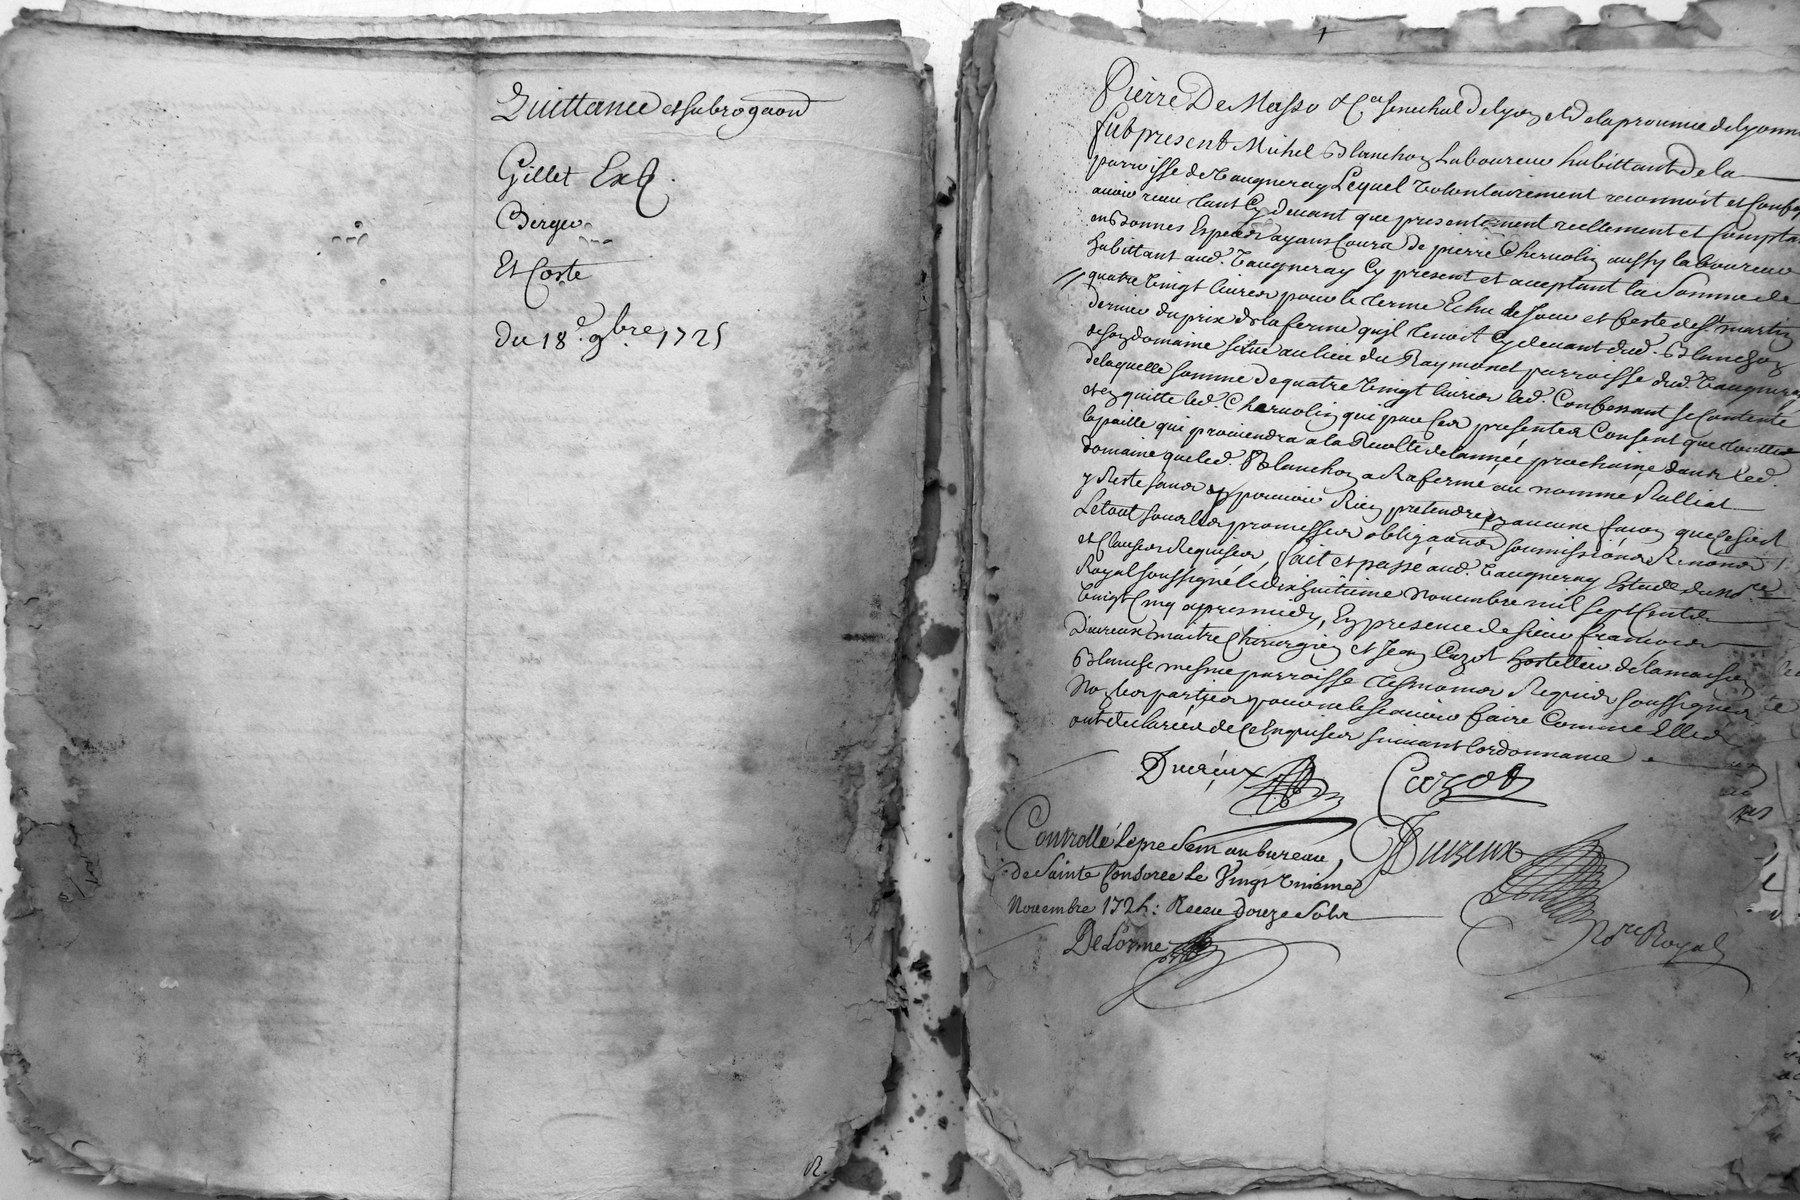 Quittance et subrogaon
Gillet Exp.
Berger
Et Coste
Du 18e. 9bre. 1725
Pierre De Masso &Ca senechal de lyon et de la province de lyonn
Fut present Michel Blanchon laboureur habittant de la
parroisse de Vaugneray Lequel volontairement reconnoit et Confes
avoir receu tant Cy devant que presentement reellement et compta
en bonnes Especes ayans Cours de pierre Chervolin aussy laboureur
habittant aud. Vaugneray Cy present et acceptant la somme de
quatre vingt livres pour le terme Echu de Jour et feste de st martin
dernier du prix de la ferme qu'jl tenoit Cy devant dud. Blanchon
de son domaine situé au lieu du Raymonet parroisse dud. Vaugneray
de laquelle somme de quatre vingt livres led. Confessant se Contente
et en quitte led. Chervolin qui par Ces presentes Consent que toutte
la paille qui proviendra a la Recolte de l'année prochaine dans led.
domaine que led. Blanchon a Rafermé au nommé Ralliat
y Reste sans y pouvoir Rien pretendre en aucune facon que Ce soit
Le tout sous les promesses obligaons soumissions Renons
et Clauses Requises, fait et passé aud. Vaugneray Estude du nore
Royal soussigné le dix huitieme novembre mil sept Cents
vingt Cinq apres midy, En presence de sieur francois
Ducreux maitre Chirurgien et Jean Cozot hostellier de la maison
Blanche mesme parroisse tesmoins Requis soussignes
Non les parties pour ne le scavoir faire Comme Elles
ont declarées de Ce Enquises suivant l'ordonnance
Ducreux Cozot
Controllé Le present au bureau
de Sainte Consorce Le Vingt unieme
Novembre 172 : Receu douze sols
Delorme
Ducreux
Nore Royal